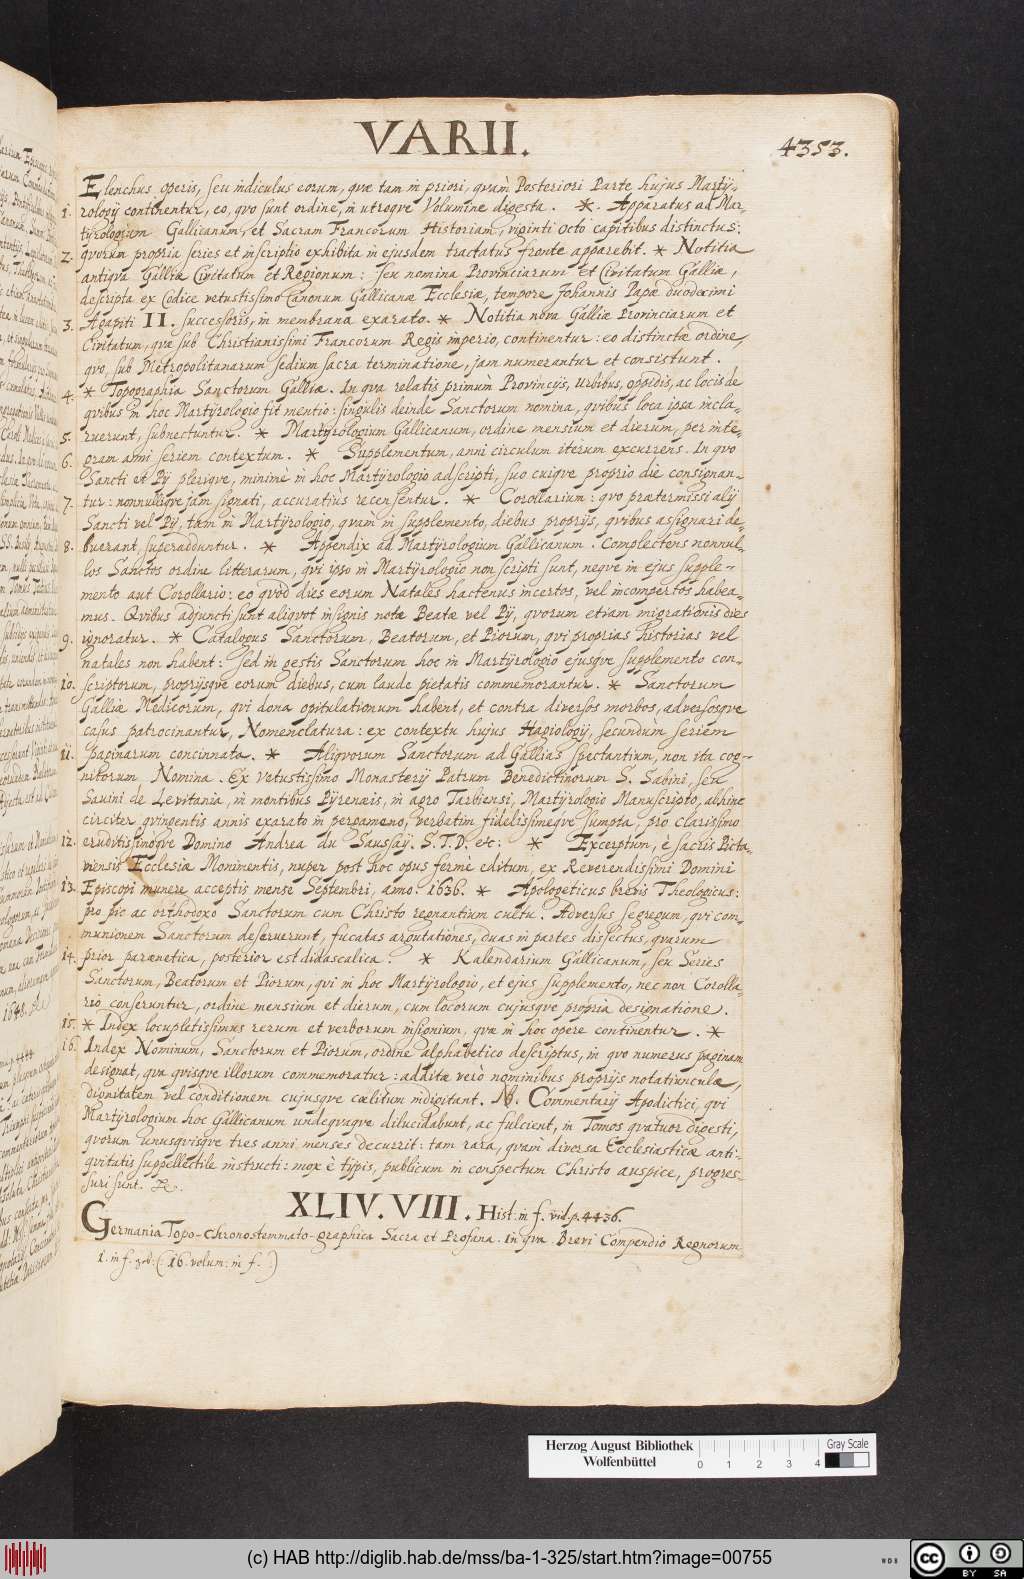 VARII.
4353.
Elenchus operis, seu indiculus eorum, quæ tam in priori, quàm Posteriori Parte hujus Martÿ-
1. rologij continentur, eo, quo sunt ordine, in utroqve Volumine digesta. * Apparatus ad Mar-
tyrologium Gallicanum, et Sacram Francorum Historiam, viginti octo capitibus distinctus:
2. qvorum propria series et inscriptio exhibita in ejusdem tractatus fronte apparebit. * Notitia
antiqva Galliæ Civitatum et Regionum: seu nomina Provinciarum et Civitatum Galliæ,
descripta ex Codice vetustissimo Canonum Gallicanæ Ecclesiæ, tempore Johannis Papæ duodecimi
3. Agapiti II. successoris, in membrana exarato. * Notitia nova Galliæ Provinciarum et
Civitatum, qvæ sub Christianissimi Francorum Regis imperio, continentur: eo distinctæ ordine,
qvo, sub Metropolitanarum sedium sacra terminatione, jam numerantur et consistunt.
4. * Topographia Sanctorum Galliæ. In qva relatis primum Provincijs, Urbibus, oppidis, ac locis de
qvibus in hoc Martyrologio fit mentio: singulis deinde Sanctorum nomina, qvibus loca ipsa incla-
5. ruerunt, subnectuntur. * Martyrologium Gallicanum, ordine mensium et dierum, per inte-
6. gram anni seriem contextum. * Supplementum, anni circulum iterum excurrens. In qvo
Sancti et Pij pleriqve, minimè in hoc Martyrologio adscripti, suo cuiqve proprio die consignan-
7. tur: nonnulliqve jam signati, accuratius recensentur. * Corollarium: qvo prætermissi alij
Sancti vel Pij, tam in Martÿrologio, qvàm in supplemento, diebus proprijs, qvibus assignari de-
8. buerant, superadduntur. * Appendix ad Martyrologium Gallicanum. Complectens nonnul-
los Sanctos ordine litterarum, qvi ipso in Martyrologio non scripti sunt, neqve in ejus supple-
mento aut Corollario: eo qvod dies eorum Natales hactenus incertos, vel incompertos habea-
mus. Qvibus adjuncti sunt aliqvot insignis notæ Beatæ vel Pij, qvorum etiam migrationis dies
9. ignoratur. * Catalogus Sanctorum, Beatorum, et Piorum, qvi proprias historias vel
natales non habent: sed in gestis Sanctorum hoc in Martÿrologio ejusqve supplemento con-
10. scriptorum, proprijsqve eorum diebus, cum laude pietatis commemorantur. * Sanctorum
Galliæ Medicorum, qvi dona opitulationum habent, et contra diversos morbos, adversosqve
casus patrocinantur, Nomenclatura: ex contextu hujus Hagiologij, secundùm seriem
11. paginarum concinnata. * Aliqvorum Sanctorum ad Gallias spectantium, non ita cog-
nitorum Nomina. Ex vetustissimo Monasterij Patrum Benedictinorum S. Sabini, seu
Savini de Levitania, in montibus Pÿrenæis, in agro Tarbiensi, Martÿrologio Manuscripto, abhinc
circiter qvingentis annis exarato in pergameno, verbatim fidelissimeqve sumpta pro clarissimo
12. eruditissimoqve Domino Andrea du Saussaÿ. S. T. D. etc: * Excerptum, è sacris Picta-
viensis Ecclesiæ Monimentis, nuper post hoc opus fermè editum, ex Reverendissimi Domini
13. Episcopi munere acceptis mense Septembri, anno. 1636. * Apologeticus brevis Theologicus:
pro pic ac orthodoxo Sanctorum cum Christo regnantium cultu. Adversus segregum, qvi com
munionem Sanctorum deseruerunt, fucatas argutationes, duas in partes dissectus, qvarum
14. prior parænetica, posterior est didascalica. * Kalendarium Gallicanum, seu Series
Sanctorum, Beatorum et Piorum, qvi in hoc Martyrologio, et ejus supplemento, nec non Corolla-
rio conseruntur, ordine mensium et dierum, cum locorum cujusqve propria designatione.
15. * Index locupletissimus rerum et verborum insignium, qvæ in hoc opere continentur. *
16. Index Nominum, Sanctorum et Piorum, ordine alphabetico descriptus, in qvo numerus paginam
designat, qva qvisqve illorum commemoratur: additæ verò nominibus proprijs notatiunculæ,
dignitatem vel conditionem cujusqve cælitum indigitant. Nb. Commentarij Apodictici, qvi
Martyrologium hoc Gallicanum undeqvaqve dilucidabunt, ac fulcient, in Tomos qvatuor digesti,
qvorum unusqvisqve tres anni menses decurrit: tam rara, qvàm diversa Ecclesiasticæ anti-
qvitatis suppellectile instructi: mox è typis, publicum in conspectum Christo auspice, progres-
suri sunt. &c.
XLIV. VIII. Hist. in f. vid. p. 4436.
Germania Topo-Chronostemmato-graphica Sacra et Profana. In qva Brevi Compendio Regnorum
1. in f. (16. volum: in f.)
Herzog August Bibliothek
Wolfenbüttel
0 1 2 3 4
Gray Scale
(c) HAB http://diglib.hab.de/mss/ba-1-325/start.htm?image=00755
WDB
cc BY SA